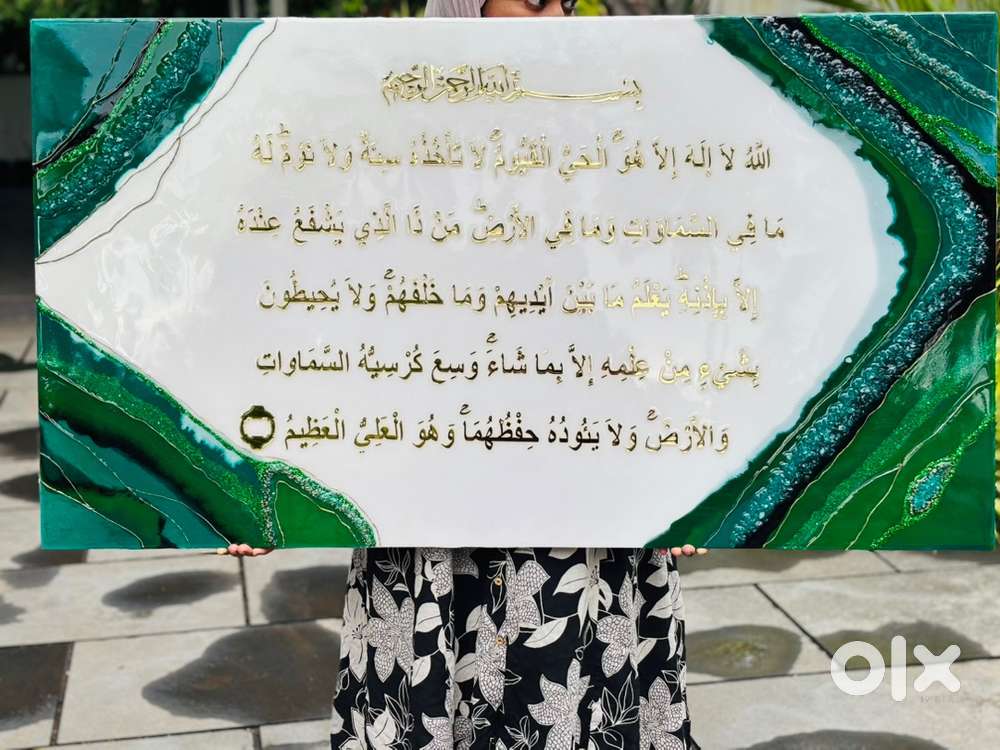 بِسْمِ اللهِ الرَّحْمٰنِ الرَّحِيْمِ
اللّٰهُ لاَ إِلَهَ إِلاَّ هُوَ ۚ الْحَيُّ الْقَيُّومُ ۚ لاَ تَأْخُذُهُ سِنَةٌ وَلاَ نَوْمٌ ۚ لَهُ
مَا فِي السَّمَاوَاتِ وَمَا فِي الأَرْضِ ۗ مَنْ ذَا الَّذِي يَشْفَعُ عِنْدَهُ
إِلاَّ بِإِذْنِهِ ۚ يَعْلَمُ مَا بَيْنَ أَيْدِيهِمْ وَمَا خَلْفَهُمْ ۖ وَلاَ يُحِيطُونَ
بِشَيْءٍ مِنْ عِلْمِهِ إِلاَّ بِمَا شَاءَ ۚ وَسِعَ كُرْسِيُّهُ السَّمَاوَاتِ
وَالأَرْضَ ۖ وَلاَ يَئُودُهُ حِفْظُهُمَا ۚ وَهُوَ الْعَلِيُّ الْعَظِيمُ
olx